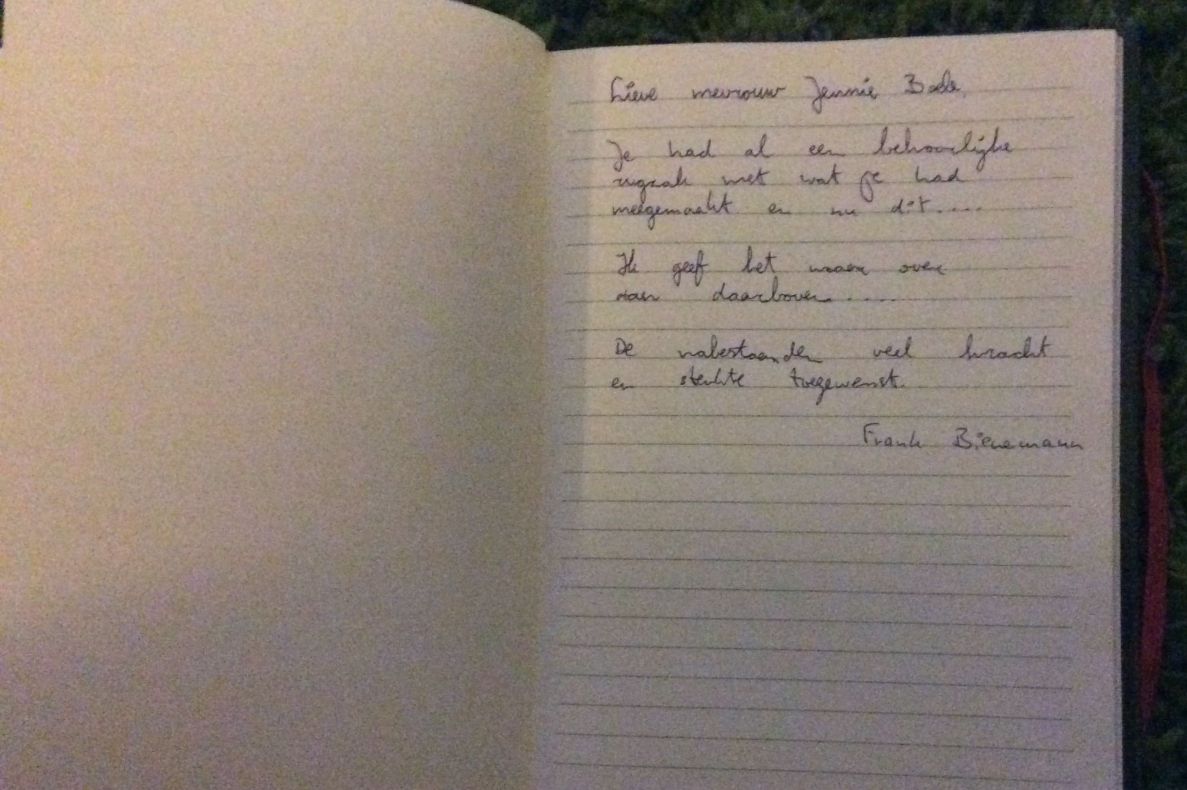 Lieve mevrouw Jennie Bode,
Je had al een behoorlijke
rugzak met wat je had
meegemaakt en nu dit....
Ik geef het maar over
aan daarboven.....
De nabestaanden veel kracht
en sterkte toegewenst.
Frank Bienemann